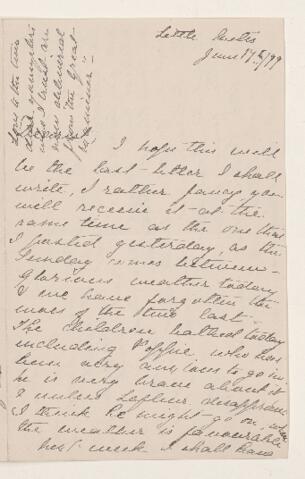 Little
June 17th/99
I hope this will
be the last letter I shall
write, I rather fancy you
will receive it at the
same time as the one that
I posted yesterday, as the
Sunday comes between -
glorious weather today
& we have forgotten the
woes of the two last -
The children bathed today
including who has
been very anxious to go in.
he is very brave about it
& unless disapproves
I think he might go on, when
the weather is favourable
next week I shall have
Love to the two
dear youngsters